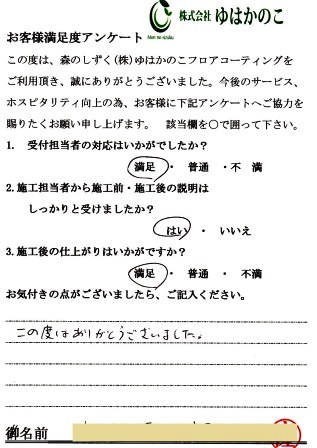 株式会社 ゆはかのこ
お客様満足度アンケート
この度は、森のしずく(株)ゆはかのこフロアコーティングを
ご利用頂き、誠にありがとうございました。今後のサービス、
ホスピタリティ向上の為、お客様に下記アンケートへご協力を
賜りたくお願い申し上げます。 該当欄を○で囲って下さい。
1. 受付担当者の対応はいかがでしたか?
満足 ・ 普通 ・不 満
2.施工担当者から施工前・施工後の説明は
しっかりと受けましたか?
はい ・ いいえ
3.施工後の仕上がりはいかがですか?
満足 ・ 普通 ・ 不満
お気付きの点がございましたら、ご記入ください。
この度はありがとうございました。
御名前